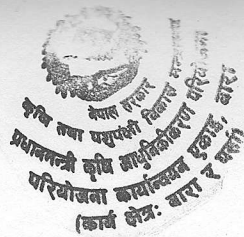 नेपाल सरकार
कृषि तथा पशुपंक्षी विकास मन्त्रालय
प्रधानमन्त्री कृषि आधुनिकीकरण परियोजना
परियोजना कार्यान्वयन एकाई, बारा
(कार्य क्षेत्र: बारा र पर्सा)